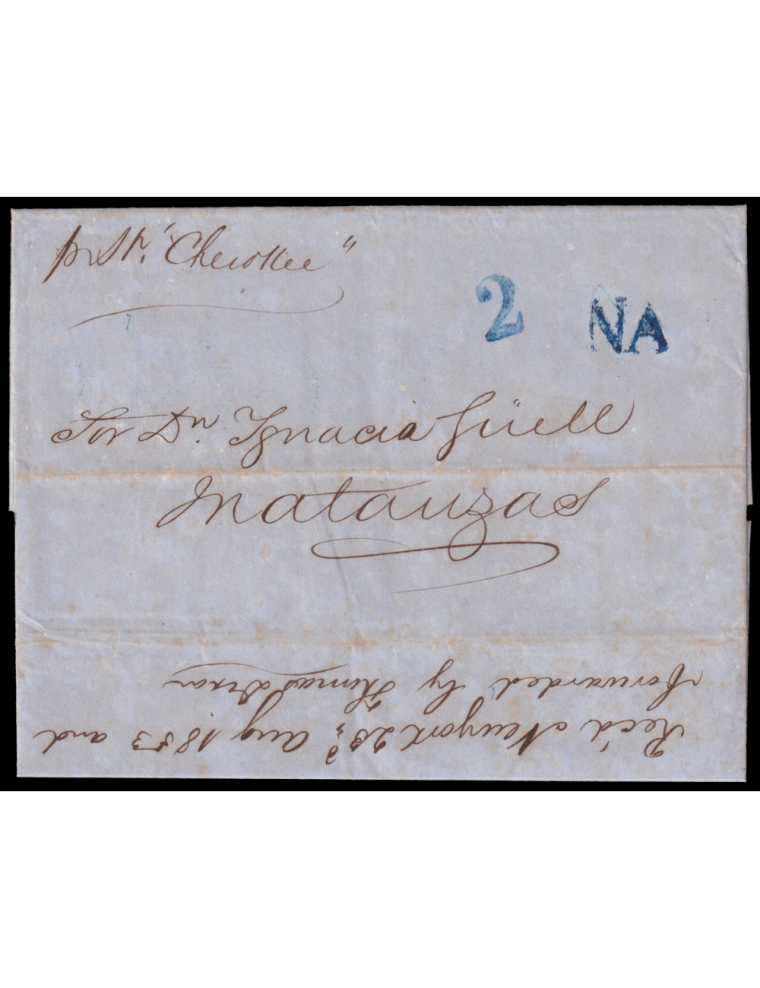 pr Str. "Cherokee"
2 NA
Sor Dn. Ygnacia Güell
Matanzas
Rec'd Newyork 20, Aug 1853 and
forwarded by Thomas